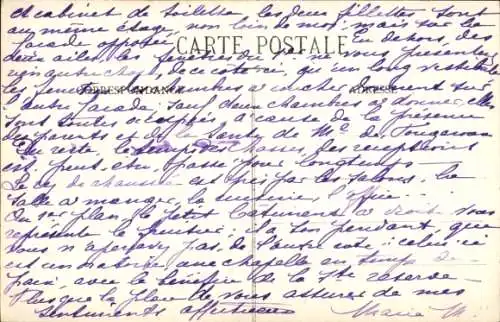 et cabinet de toilette les deux fillettes sont
au même étage, non loin de moi; mais sur la
façade opposée. En dehors, des
CARTE POSTALE
deux ailes les fenêtres du ne vous présentent
rien autre chose, de ce côté ci, qu'un long vestibule
CORRESPONDANCE ADRESSE
les fenêtres des chambres à coucher donnent sur
l'autre façade. Sauf deux chambres à donner, elles
sont toutes occupées à cause de la présence
des parents et de la santé de Mr de
Du reste, le temps des chasses, des réceptions
est peut-être passé pour longtemps.
Le rez de chaussée est pris par les salons, la
salle à manger, la cuisine, l'office
Au 1er plan, le petit bâtiment à droite vous
représente le; il a son pendant, que
vous n'apercevez pas, de l'autre côté: celui ci
est un oratoire, avec chapelle en temps de
paix, avec le bénéfice de la Ste réserve
Plus que la place de vous assurer de mes
sentiments affectueux Marie M.